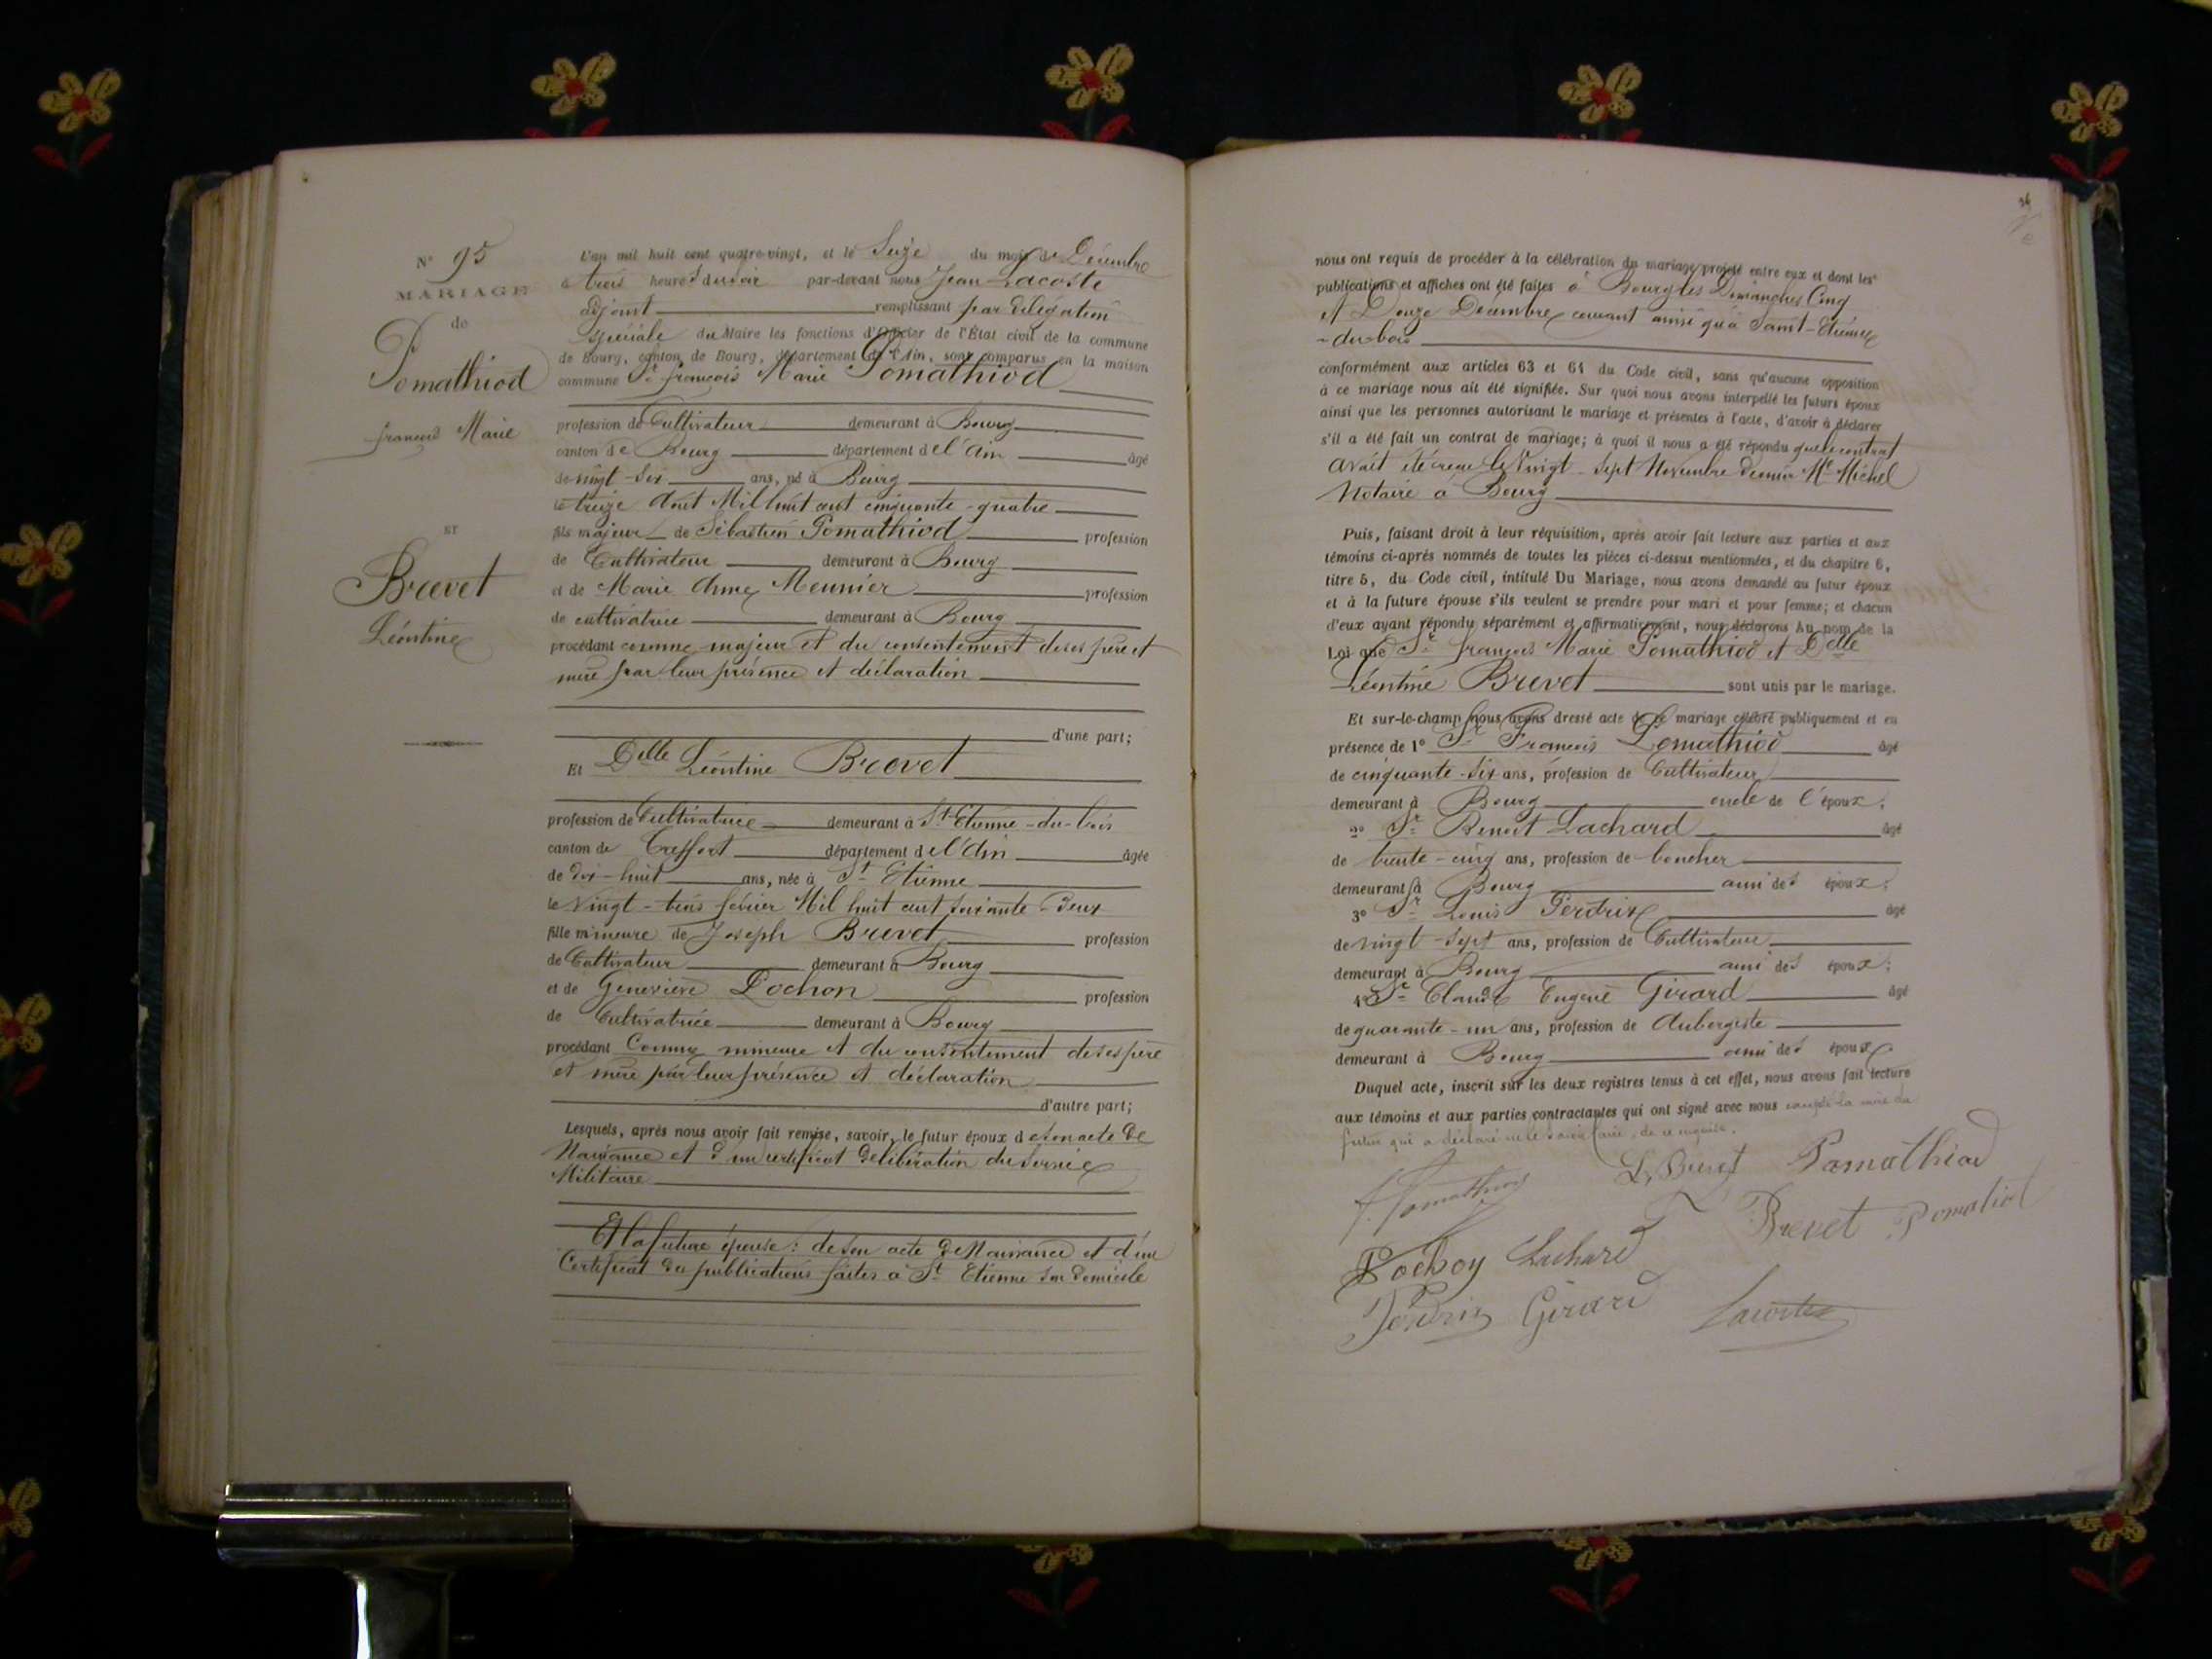 N° 95
MARIAGE
de
Pomathiod
François Marie
ET
Brevet
Léontine
L'an mil huit cent quatre-vingt, et le Seize du mois de Décembre
à trois heures du soir par-devant nous Jean Lacoste
adjoint remplissant par délégation
spéciale du Maire les fonctions d'Officier de l'État civil de la commune
de Bourg, canton de Bourg, département de l'Ain, sont comparus en la maison
commune Sr François Marie Pomathiod
profession de Cultivateur demeurant à Bourg
canton de Bourg département de l'Ain âgé
de vingt-six ans, né à Bourg
le treize Août Mil huit cent cinquante-quatre
fils majeur de Sébastien Pomathiod profession
de Cultivateur demeurant à Bourg
et de Marie Anne Meunier profession
de cultivatrice demeurant à Bourg
procédant comme majeur et du consentement de ses père et
mère par leur présence et déclaration
d'une part;
Et Delle Léontine Brevet
profession de Cultivatrice demeurant à St Etienne-du-bois
canton de Treffort département de l'Ain âgée
de dix-huit ans, née à St Etienne
le vingt-trois février Mil huit cent soixante-deux
fille mineure de Joseph Brevet profession
de Cultivateur demeurant à Bourg
et de Geneviève Pochon profession
de Cultivatrice demeurant à Bourg
procédant Comme mineure et du consentement de ses père
et mère par leur présence et déclaration
d'autre part;
Lesquels, après nous avoir fait remise, savoir, le futur époux de son acte de
Naissance et d'un certificat de libération du service
Militaire
Et la future épouse: de son acte de Naissance et d'un
Certificat des publications faites à St Etienne son domicile
36
nous ont requis de procéder à la célébration du mariage projeté entre eux et dont les
publications et affiches ont été faites à Bourg les Dimanches Cinq
et Douze Décembre courant ainsi qu'à Saint-Etienne
-du-bois
conformément aux articles 63 et 64 du Code civil, sans qu'aucune opposition
à ce mariage nous ait été signifiée. Sur quoi nous avons interpellé les futurs époux
ainsi que les personnes autorisant le mariage et présentes à l'acte, d'avoir à déclarer
s'il a été fait un contrat de mariage; à quoi il nous a été répondu que le contrat
avait été reçu le Vingt-sept Novembre dernier Me Michel
Notaire à Bourg
Puis, faisant droit à leur réquisition, après avoir fait lecture aux parties et aux
témoins ci-après nommés de toutes les pièces ci-dessus mentionnées, et du chapitre 6,
titre 5, du Code civil, intitulé Du Mariage, nous avons demandé au futur époux
et à la future épouse s'ils veulent se prendre pour mari et pour femme; et chacun
d'eux ayant répondu séparément et affirmativement, nous déclarons Au nom de la
Loi que Sr François Marie Pomathiod et Delle
Léontine Brevet sont unis par le mariage.
Et sur-le-champ nous avons dressé acte de ce mariage célébré publiquement et en
présence de 1° Sr François Pomathiod âgé
de cinquante-six ans, profession de Cultivateur
demeurant à Bourg oncle de l'époux;
2° Sr Benoit Lachard âgé
de trente-cinq ans, profession de boucher
demeurant à Bourg ami des époux;
3° Sr Louis Perdrix âgé
de vingt-sept ans, profession de Cultivateur
demeurant à Bourg ami des époux;
4° Sr Claude Eugène Girard âgé
de quarante-un ans, profession de Aubergiste
demeurant à Bourg ami des époux
Duquel acte, inscrit sur les deux registres tenus à cet effet, nous avons fait lecture
aux témoins et aux parties contractantes qui ont signé avec nous excepté la mère du
futur qui a déclaré ne le savoir faire, de ce enquise.
L. Brevet Pomathiod
F. Pomathiod
Brevet Pomatiod
Pochoy Lachard
Perdrix Girard Lacoste